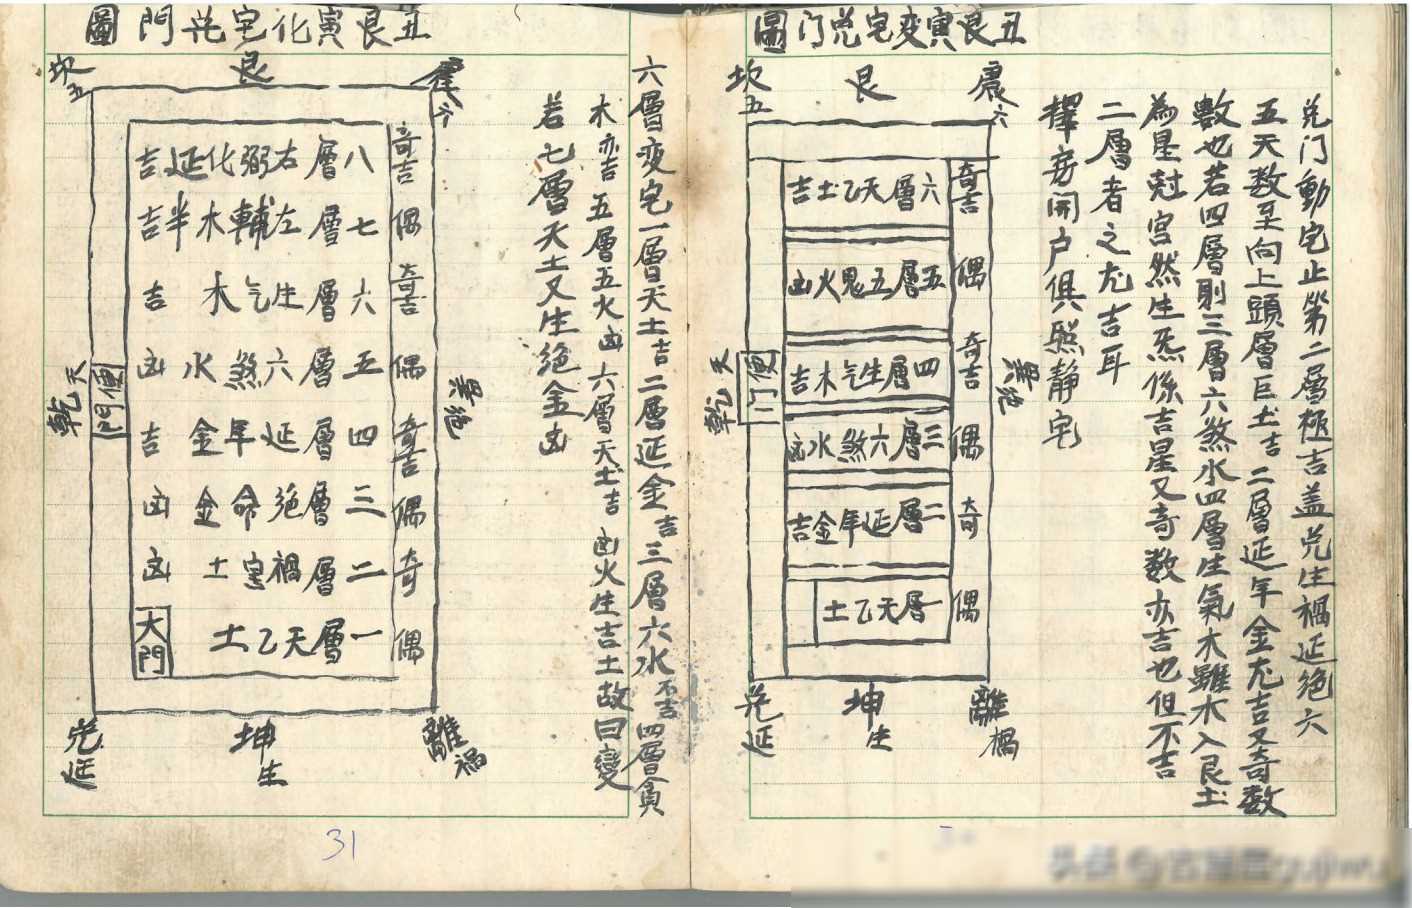 丑艮寅变宅兑门圖
兑门動宅止第二層極吉盖兑生禍延绝六
五天数至向上頭層巨土吉二層延年金尤吉又奇数
數也若四層則三層六煞水四層生氣木雖木入艮土
為星尅宫然生炁係吉星又奇数亦吉也但不吉
二層者之尤吉耳
擇安開户俱照静宅
震六
艮
坎五
奇吉
六層天乙土吉
偶
五層五鬼火凶
奇吉
四層生气木吉
偶
三層六煞水凶
奇
二層延年金吉
偶
一層天乙土
巽绝
乾天
便门
離禍
坤生
兑延
六層变宅一層天土吉二層延金吉三層六水不吉四層貪
木亦吉五層五火凶六層天土吉凶火生吉土故曰變
若七層天土又生绝金凶
丑艮寅化宅兑門圖
震六
艮
坎五
奇吉
八層右弼化延吉
偶
七層左輔木半吉
奇吉
六層生气木吉
偶
五層六煞水凶
奇吉
四層延年金吉
偶
三層绝命金凶
奇
二層禍害土凶
偶
一層天乙土
大門
巽绝
乾天
便門
離禍
坤生
兑延
31